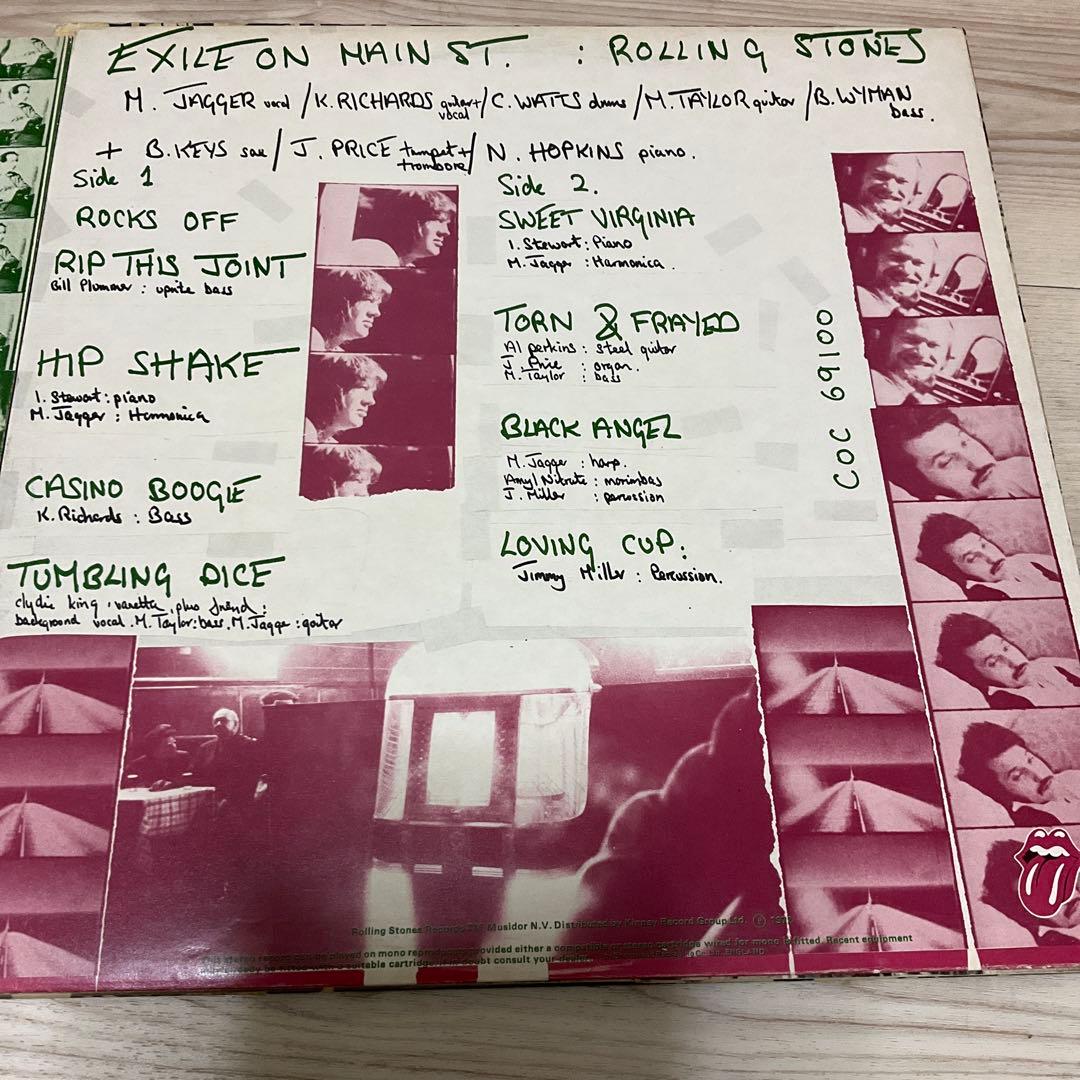 EXILE ON MAIN ST. : ROLLING STONES
M. JAGGER vocal / K. RICHARDS guitar + vocal / C. WATTS drums / M. TAYLOR guitar / B. WYMAN bass.
+ B. KEYS sax / J. PRICE trumpet + trombone / N. HOPKINS piano.
Side 1
ROCKS OFF
RIP THIS JOINT
Bill Plummer : uprite bass
HIP SHAKE
I. Stewart : piano
M. Jagger : Harmonica
CASINO BOOGIE
K. Richards : Bass
TUMBLING DICE
clydie king, vanetta, plus friend :
background vocal. M. Taylor: bass. M. Jagger : guitar
Side 2.
SWEET VIRGINIA
I. Stewart : Piano
M. Jagger : Harmonica.
TORN & FRAYED
Al perkins : steel guitar
J. Price : organ.
M. Taylor : bass
BLACK ANGEL
M. Jagger : harp.
Amyl Nitrate : marimbas
J. Miller : percussion
LOVING CUP :
Jimmy Miller : Percussion.
COC 69100
Rolling Stones Records Musidor N.V. Distributed by Kinney Record Group Ltd. ℗
This stereo record can be played on mono reproducers provided either a compatible or stereo cartridge wired for mono is fitted. Recent equipment
may already be fitted with a suitable cartridge. If in doubt consult your dealer.
ENGLAND